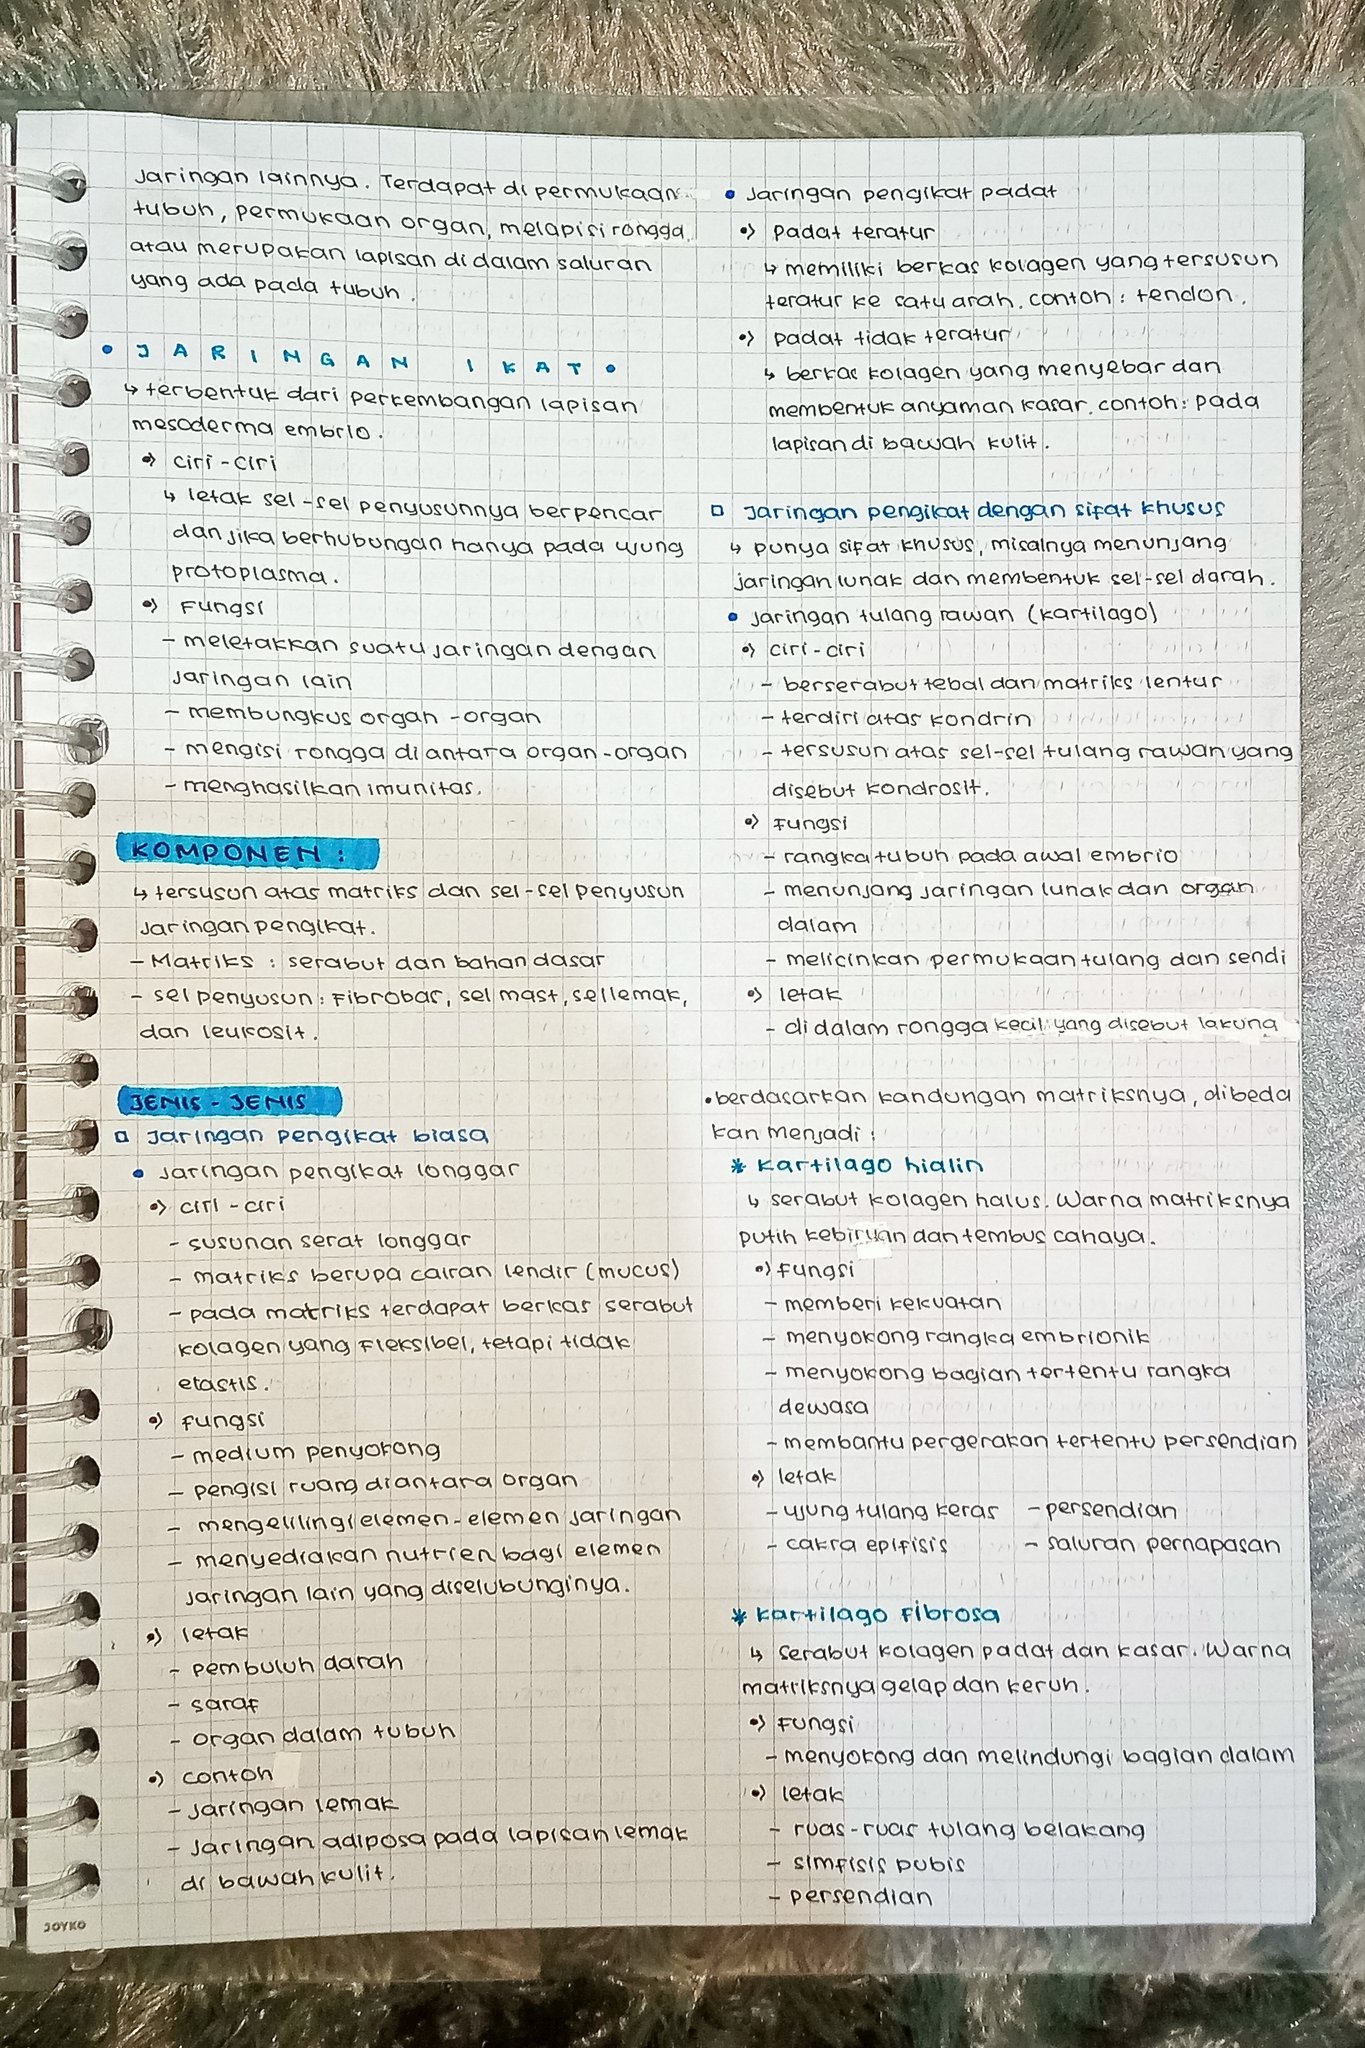 Jaringan lainnya. Terdapat di permukaan
tubuh, permukaan organ, melapisi rongga,
atau merupakan lapisan di dalam saluran
yang ada pada tubuh.
• JARINGAN IKAT •
↳ terbentuk dari perkembangan lapisan
mesoderma embrio.
•) ciri-ciri
↳ letak sel-sel penyusunnya berpencar
dan jika berhubungan hanya pada ujung
protoplasma.
•) Fungsi
- meletakkan suatu jaringan dengan
jaringan lain
- membungkus organ-organ
- mengisi rongga di antara organ-organ
- menghasilkan imunitas.
KOMPONEN :
↳ tersusun atas matriks dan sel-sel penyusun
jaringan pengikat.
- Matriks : serabut dan bahan dasar
- sel penyusun : Fibrobar, sel mast, sel lemak,
dan leukosit.
JENIS - JENIS
□ Jaringan pengikat biasa
• Jaringan pengikat longgar
•) ciri-ciri
- susunan serat longgar
- matriks berupa cairan lendir (mucus)
- pada matriks terdapat berkas serabut
kolagen yang fleksibel, tetapi tidak
elastis.
•) Fungsi
- medium penyokong
- pengisi ruang diantara organ
- mengelilingi elemen-elemen jaringan
- menyediakan nutrien bagi elemen
jaringan lain yang diselubunginya.
•) letak
- pembuluh darah
- saraf
- organ dalam tubuh
•) contoh
- Jaringan lemak
- Jaringan adiposa pada lapisan lemak
di bawah kulit.
JOYKO
• Jaringan pengikat padat
•) padat teratur
↳ memiliki berkas kolagen yang tersusun
teratur ke satu arah. contoh : tendon.
•) padat tidak teratur
↳ berkas kolagen yang menyebar dan
membentuk anyaman kasar. contoh : pada
lapisan di bawah kulit.
□ Jaringan pengikat dengan sifat khusus
↳ punya sifat khusus, misalnya menunjang
jaringan lunak dan membentuk sel-sel darah.
• Jaringan tulang rawan (kartilago)
•) ciri-ciri
- berserabut tebal dan matriks lentur
- terdiri atas kondrin
- tersusun atas sel-sel tulang rawan yang
disebut kondrosit.
•) Fungsi
- rangka tubuh pada awal embrio
- menunjang jaringan lunak dan organ
dalam
- melicinkan permukaan tulang dan sendi
•) letak
- di dalam rongga kecil yang disebut lakuna
• berdasarkan kandungan matriksnya, dibeda
kan menjadi :
* kartilago hialin
↳ serabut kolagen halus. Warna matriksnya
putih kebiruan dan tembus cahaya.
•) fungsi
- memberi kekuatan
- menyokong rangka embrionik
- menyokong bagian tertentu rangka
dewasa
- membantu pergerakan tertentu persendian
•) letak
- ujung tulang keras - persendian
- cakra epifisis - saluran pernapasan
* kartilago Fibrosa
↳ serabut kolagen padat dan kasar. Warna
matriksnya gelap dan keruh.
•) Fungsi
- menyokong dan melindungi bagian dalam
•) letak
- ruas-ruas tulang belakang
- simfisis pubis
- persendian